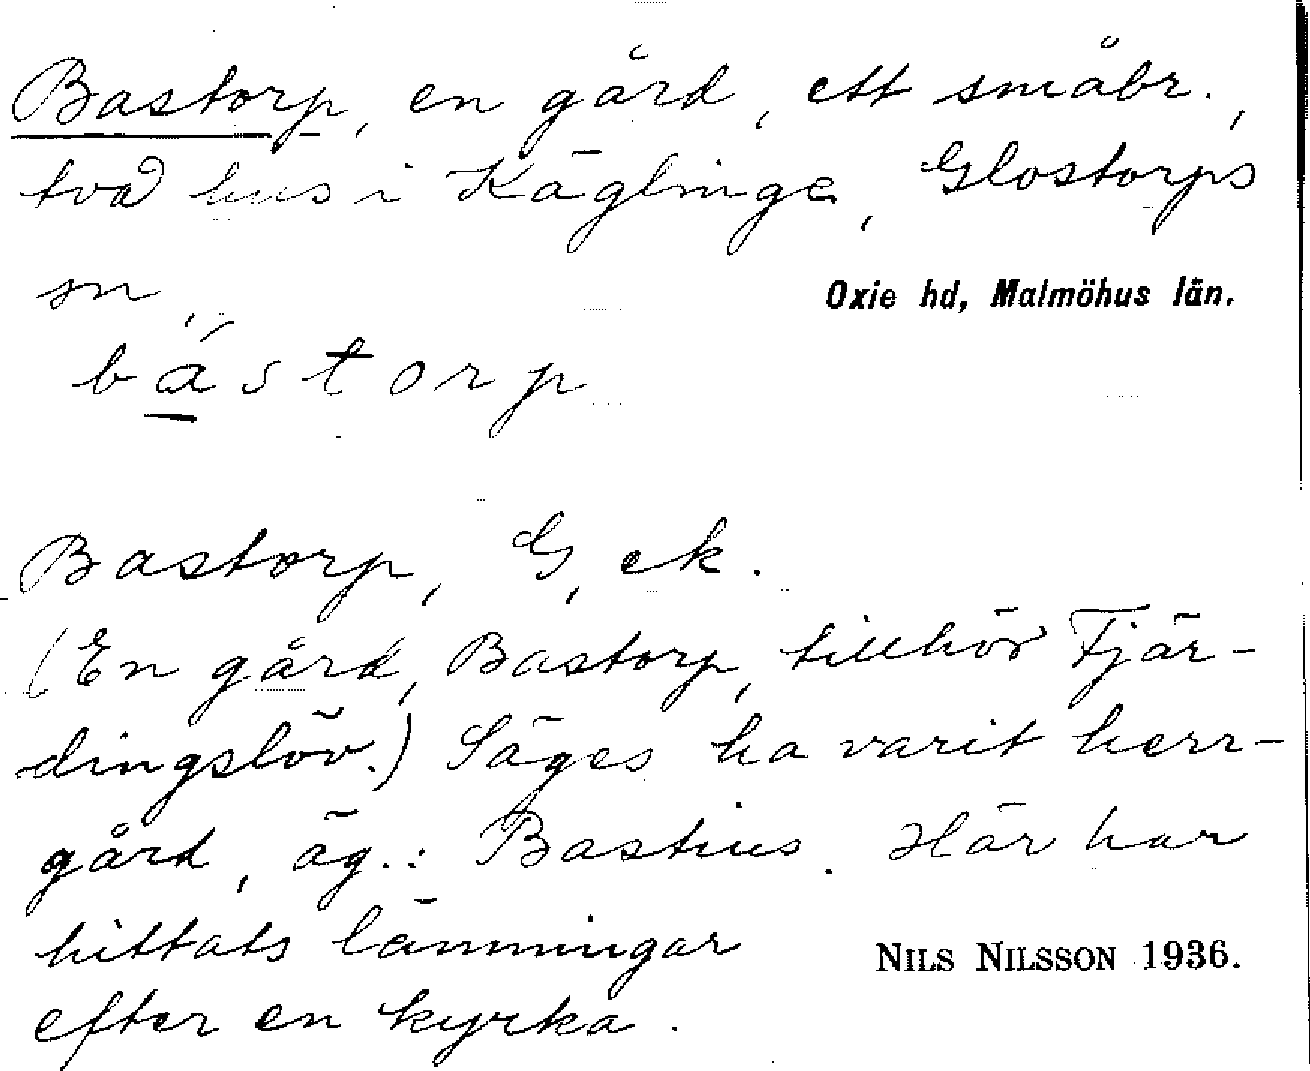 Bastorp, en gård, ett småbr.,
två hus i Käglinge, Glostorps
sn,
Oxie hd, Malmöhus län.
bástorp
Bastorp, G, ek.
(En gård, Bastorp, tillhör Fjär-
dingslöv.) Säges ha varit herr-
gård, äg.: Bastius. Här har
hittats lämningar
efter en kyrka.
NILS NILSSON 1936.